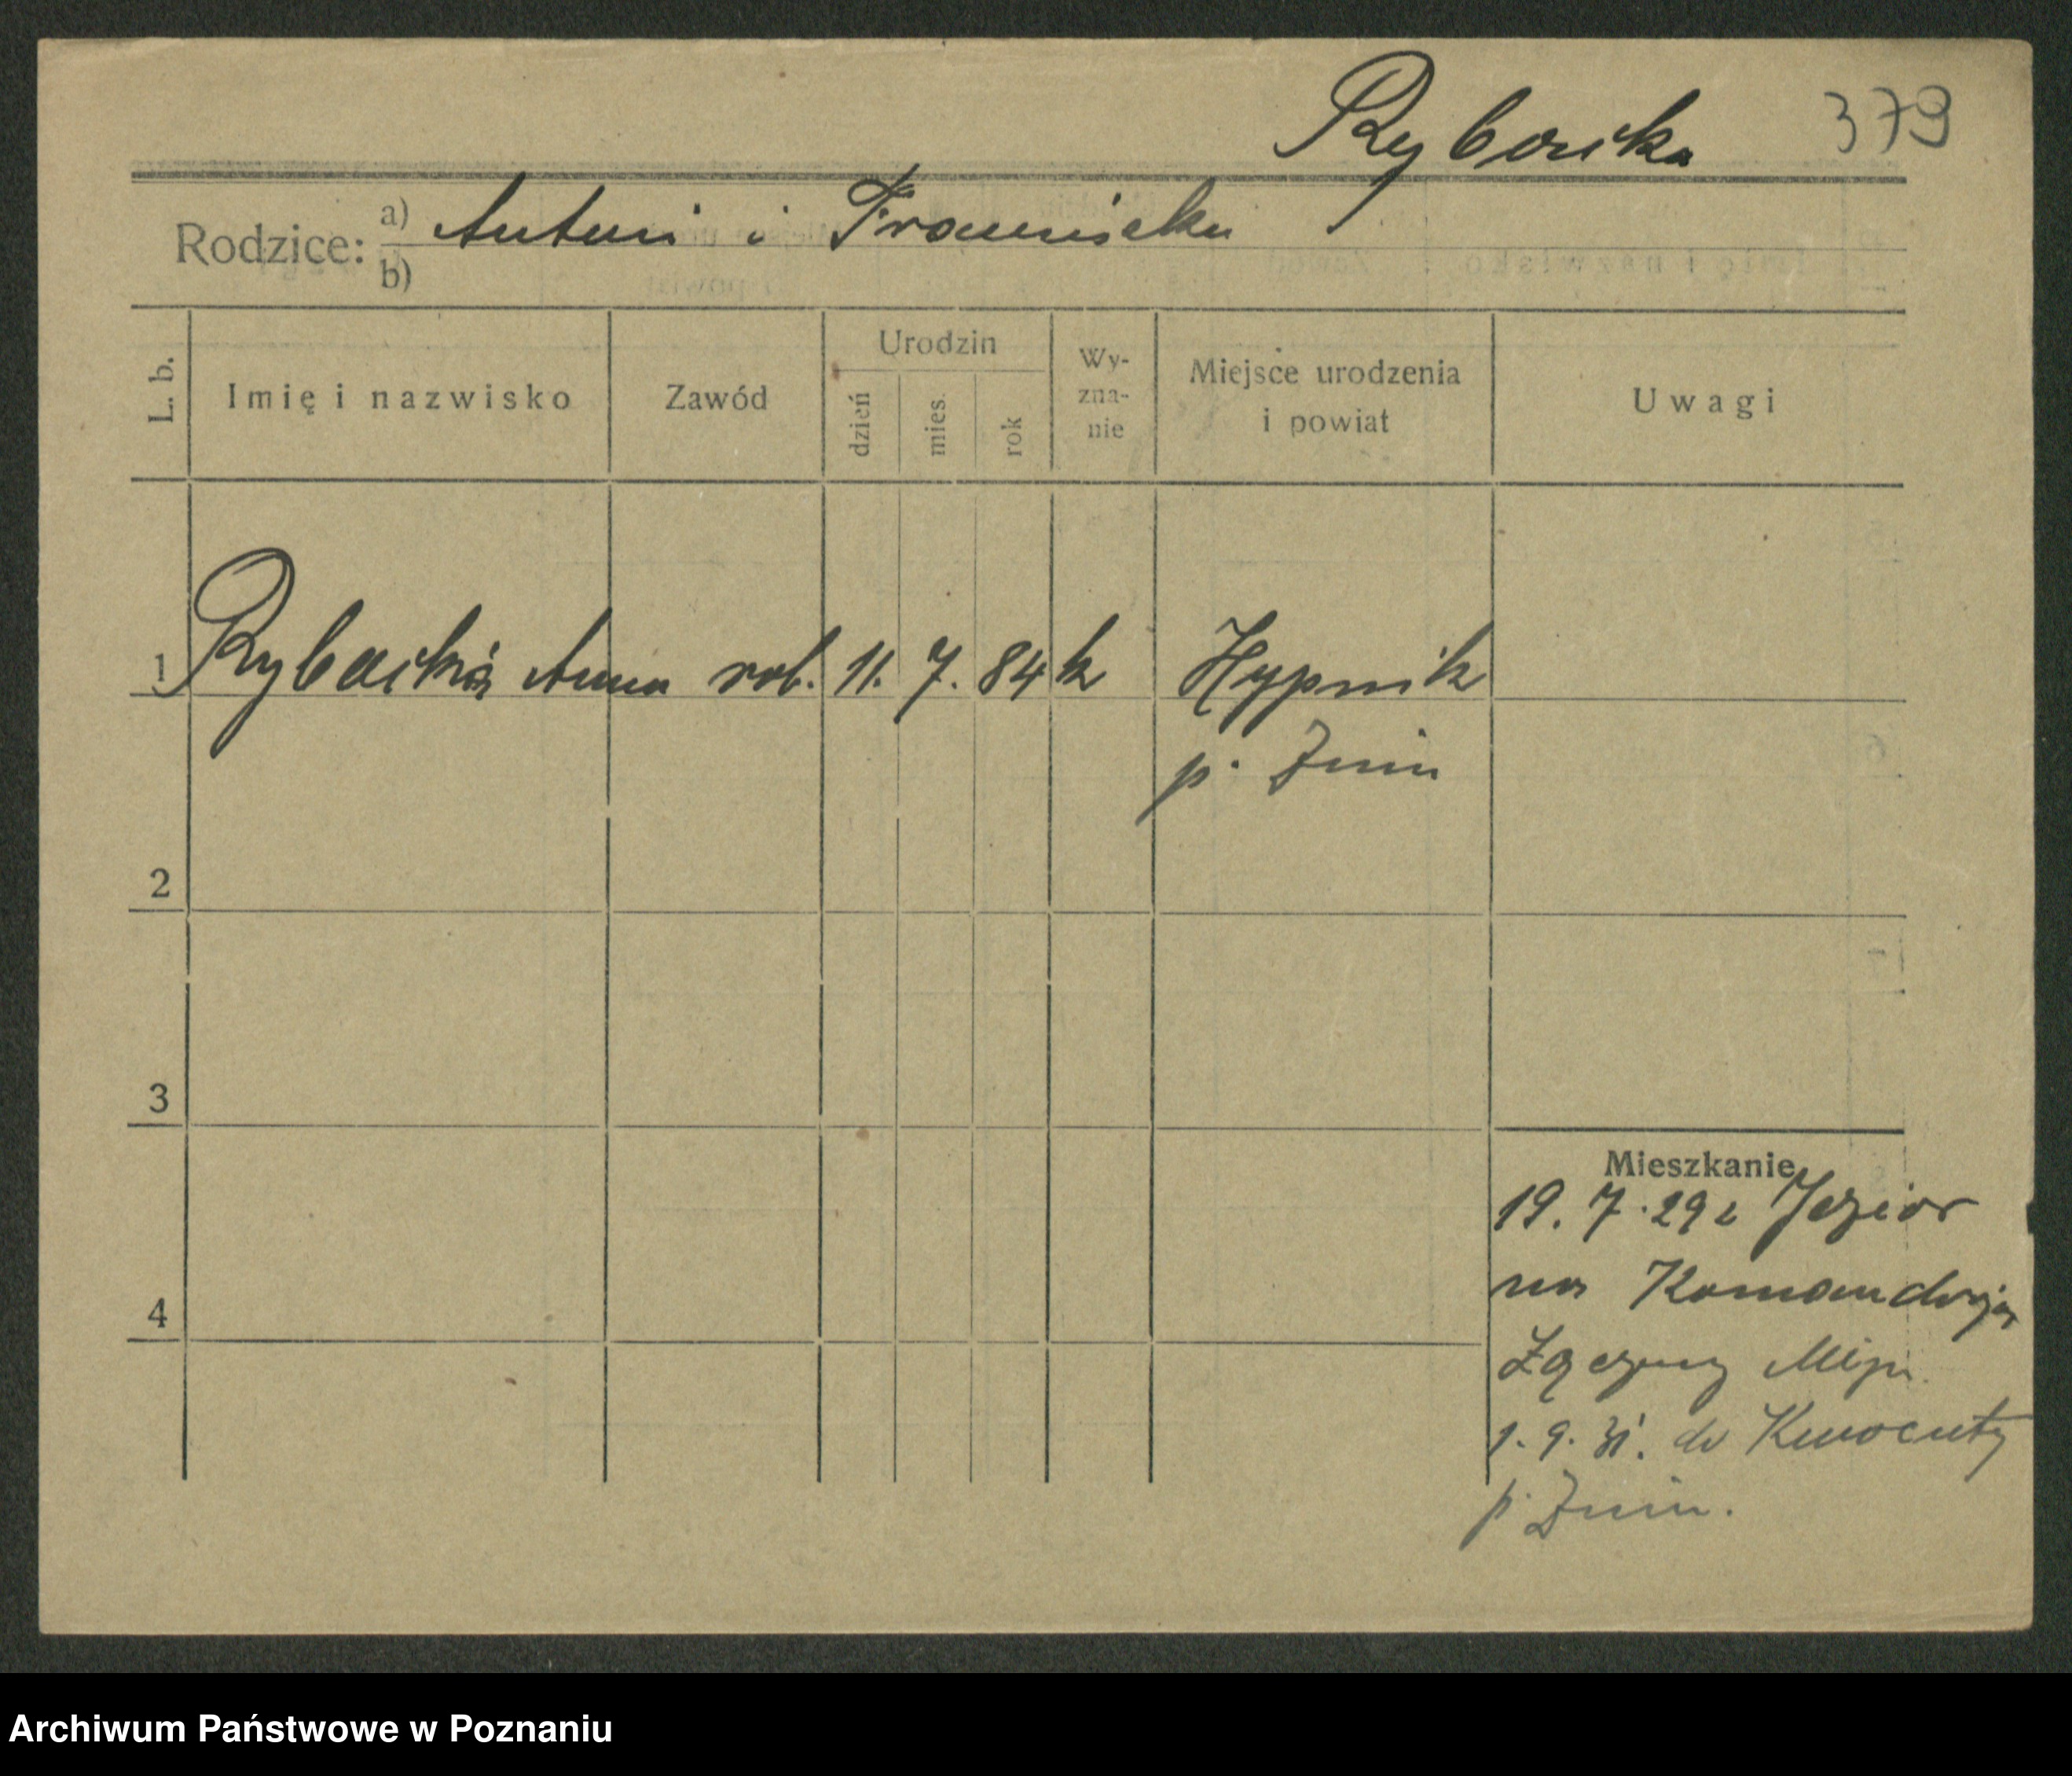 Rybacka 379
Rodzice: a) Antoni i Franciszka
b)
L. b. Imię i nazwisko Zawód Urodzin dzień mies. rok Wy-zna-nie Miejsce urodzenia i powiat Uwagi
1 Rybacka Anna rob. 11. 7. 84 k
p. Żnin
2
3
4
Mieszkanie
19. 7. 29 z Jezior
na
1. 9. 31. do
p. Żnin.
Archiwum Państwowe w Poznaniu